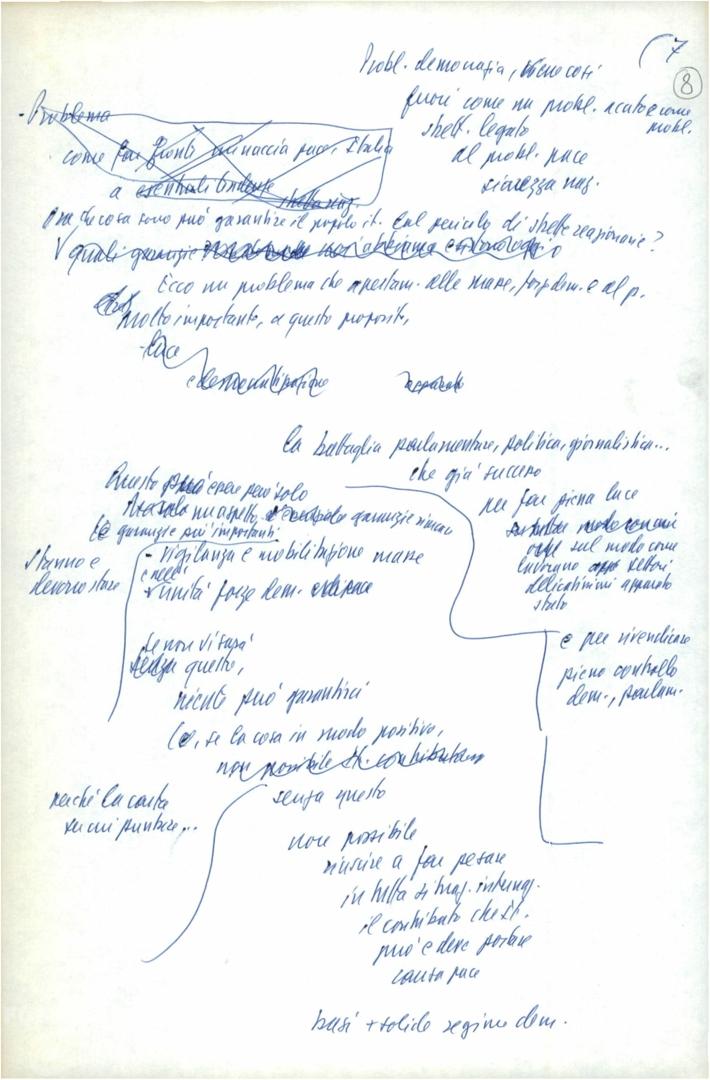 7
8
Probl. democrazia, viene così
fuori come un probl. acuto e come probl.
strett. legato
al probl. pace
sicurezza naz.
- Problema
come far fronti minaccia pace, Italia
a
Ora che cosa sono può garantire il popolo it. dal pericolo di strette reazionarie?
quali garanzie
Ecco un problema che apertam. alle masse, forze dem. e al p.
Molto importante, a questo proposito,
- luce
la battaglia parlamentare, politica, giornalistica...
che già successo
per far piena luce
sul modo come
lavorano settori
delicatissimi apparato
stato
e per rivendicare
pieno controllo
dem., parlam.
Questo può essere però solo
un aspetto,
le garanzie più importanti
stanno e
devono stare
- vigilanza e mobilitazione masse
e nell'
unità forze dem.
se non vi sarà
senza questo,
niente può garantirci
(e, se la cosa in modo positivo,
non possibile
senza questo
perché la carta
su cui puntare...
non possibile
riuscire a far pesare
in tutta situaz. internaz.
il contributo che It.
può e deve portare
causa pace
basi + solide regime dem.